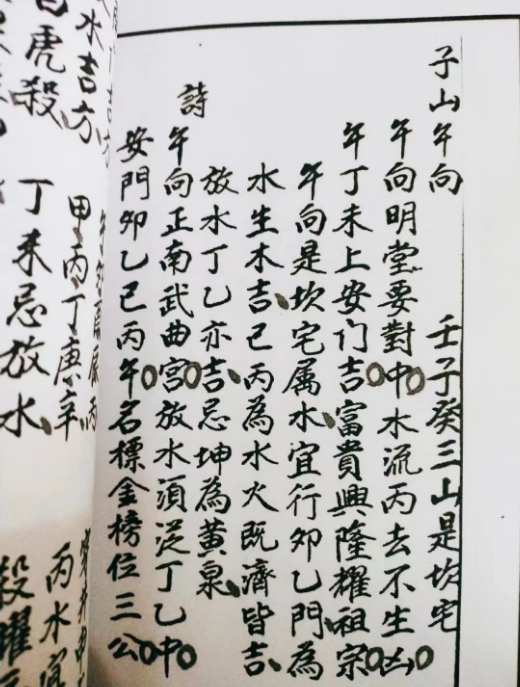 子山午向 壬子癸三山是坎宅
午向明堂要對中○水流丙去不生凶○
午丁未上安门吉○富貴興隆耀祖宗○
午向是坎宅属水、宜行卯乙門、為
水生木吉、己丙為水火既濟皆吉、
放水丁乙亦吉、忌坤為黄泉、
詩
午向正南武曲宮○放水須從丁乙中○
安門卯乙已丙午○名標金榜位三公○
甲丙丁庚辛
丙水
水吉方、
丁未忌放水、
虎殺
殺曜